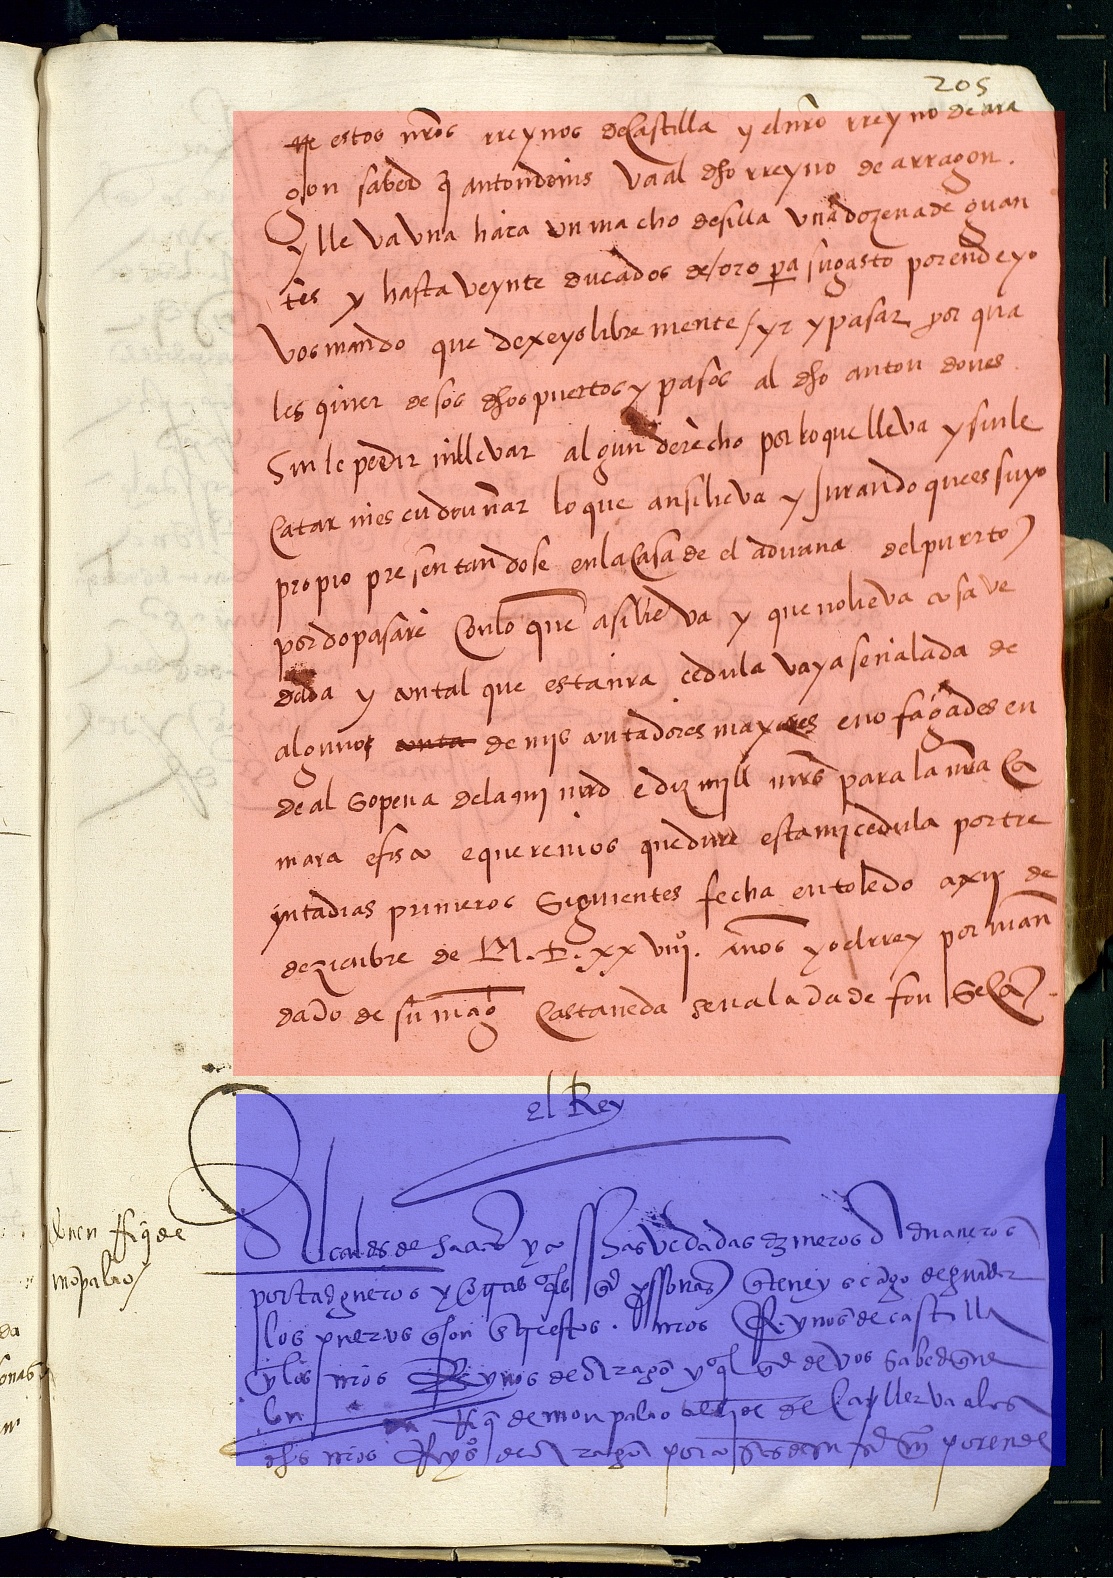 205
de estos nros rreynos de Castilla y el nro rreyno de ara
gon sabed q anton doins va al dho rreyno de arragon.
y lleva una haca un macho de silla una dozena de guan
tes y hasta veynte ducados de oro pa su gasto por ende yo
vos mando que dexeys libre mente yr y pasar por qua
les quier desos dhos puertos y pasos al dho anton doues
sin le pedir ni llevar algun derecho por lo que lleva y sin le
catar ni escudruñar lo que ansi lieva y jurando ques suyo
propio presentandose en la casa de el aduana del puerto
por do pasare con lo que asi lieva y que no lieva cosa ve
dada y con tal que esta nra cedula vaya señalada de
algunos conta de mis contadores mayores e no fagades en
de al so pena de la mi mrd e diz mill mrs para la nra ca
mara e fisco e queremos que dure esta mi cedula por tre
ynta dias primeros siguientes fecha en toledo a xij de
deziembre de M.D.xx viijº. años yo el rrey por man
dado de su magd Castañeda señalada de fonseca
el Rey
Alcaldes de sacas y cosas vedadas dzmeros aduaneros
portadgueros y otras qles qer personas q teneys cargo de guardar
los puertos q son entre estos nros Reynos de castilla
y los nros Reynos de Aragon y qlqer de vos sabed que
en figde
mopalao
frq de monpalao de Caller va a los
dhos nros Reyºs de aragon por ende